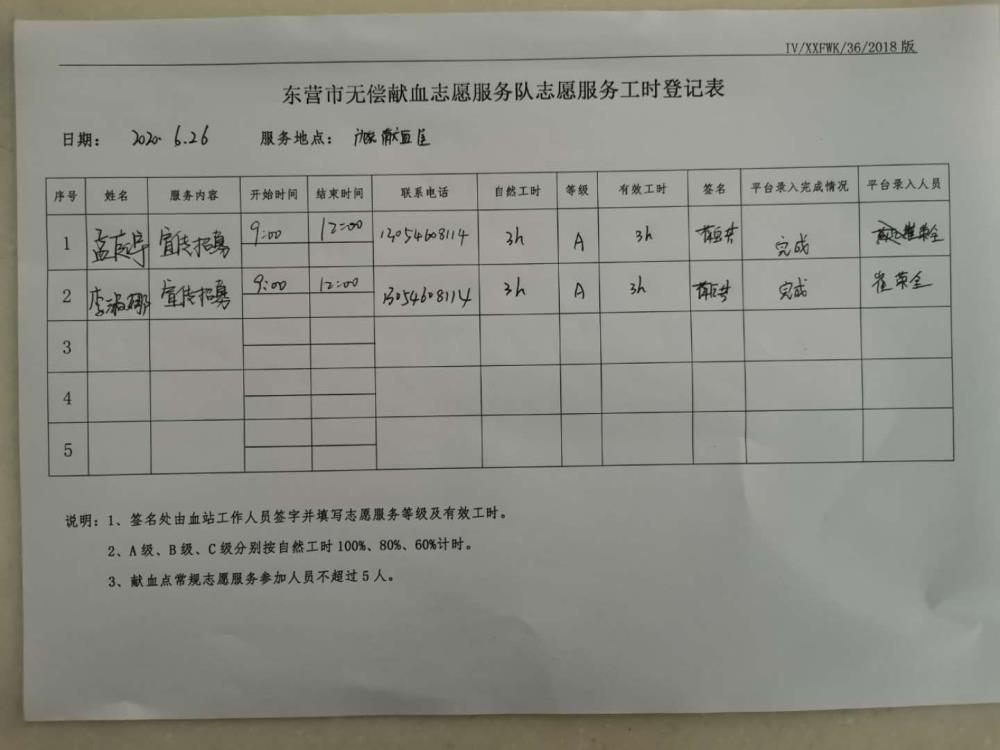 IV/XXFWK/36/2018版
东营市无偿献血志愿服务队志愿服务工时登记表
日期： 2020.6.26 服务地点： 献血
序号 姓名 服务内容 开始时间 结束时间 联系电话 自然工时 等级 有效工时 签名 平台录入完成情况 平台录入人员
1 孟 宣传招募 9:00 12:00 13054608114 3h A 3h 完成 崔荣全
2 李淑娜 宣传招募 9:00 12:00 13054608114 3h A 3h 完成 崔荣全
3
4
5
说明：1、签名处由血站工作人员签字并填写志愿服务等级及有效工时。
2、A级、B级、C级分别按自然工时100%、80%、60%计时。
3、献血点常规志愿服务参加人员不超过5人。